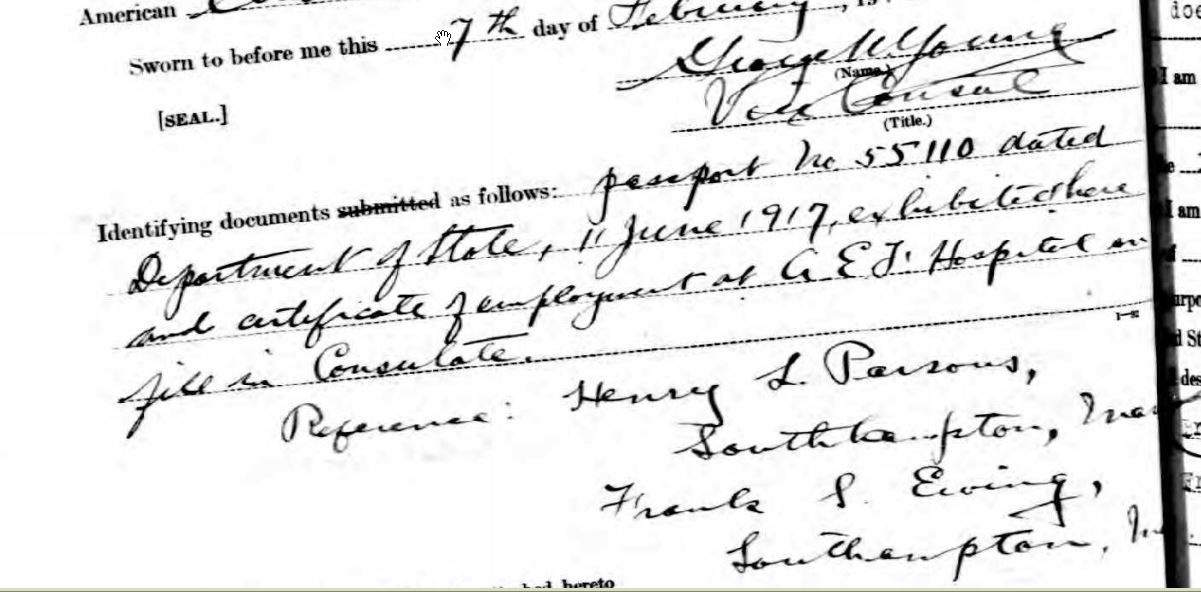 American
Sworn to before me this 7th day of February, 19
George K Young
(Name.)
[SEAL.]
Vice Consul
(Title.)
Identifying documents submitted as follows: passport No 55110 dated
Department of State, 11 June 1917, exhibited here
and certificate of employment at A E F. Hospital on
file in Consulate.
1-22
Reference: Henry L. Parsons,
Southhampton,
Frank S. Ewing,
Southampton,
hereto
doe
I am
I am
d St
des